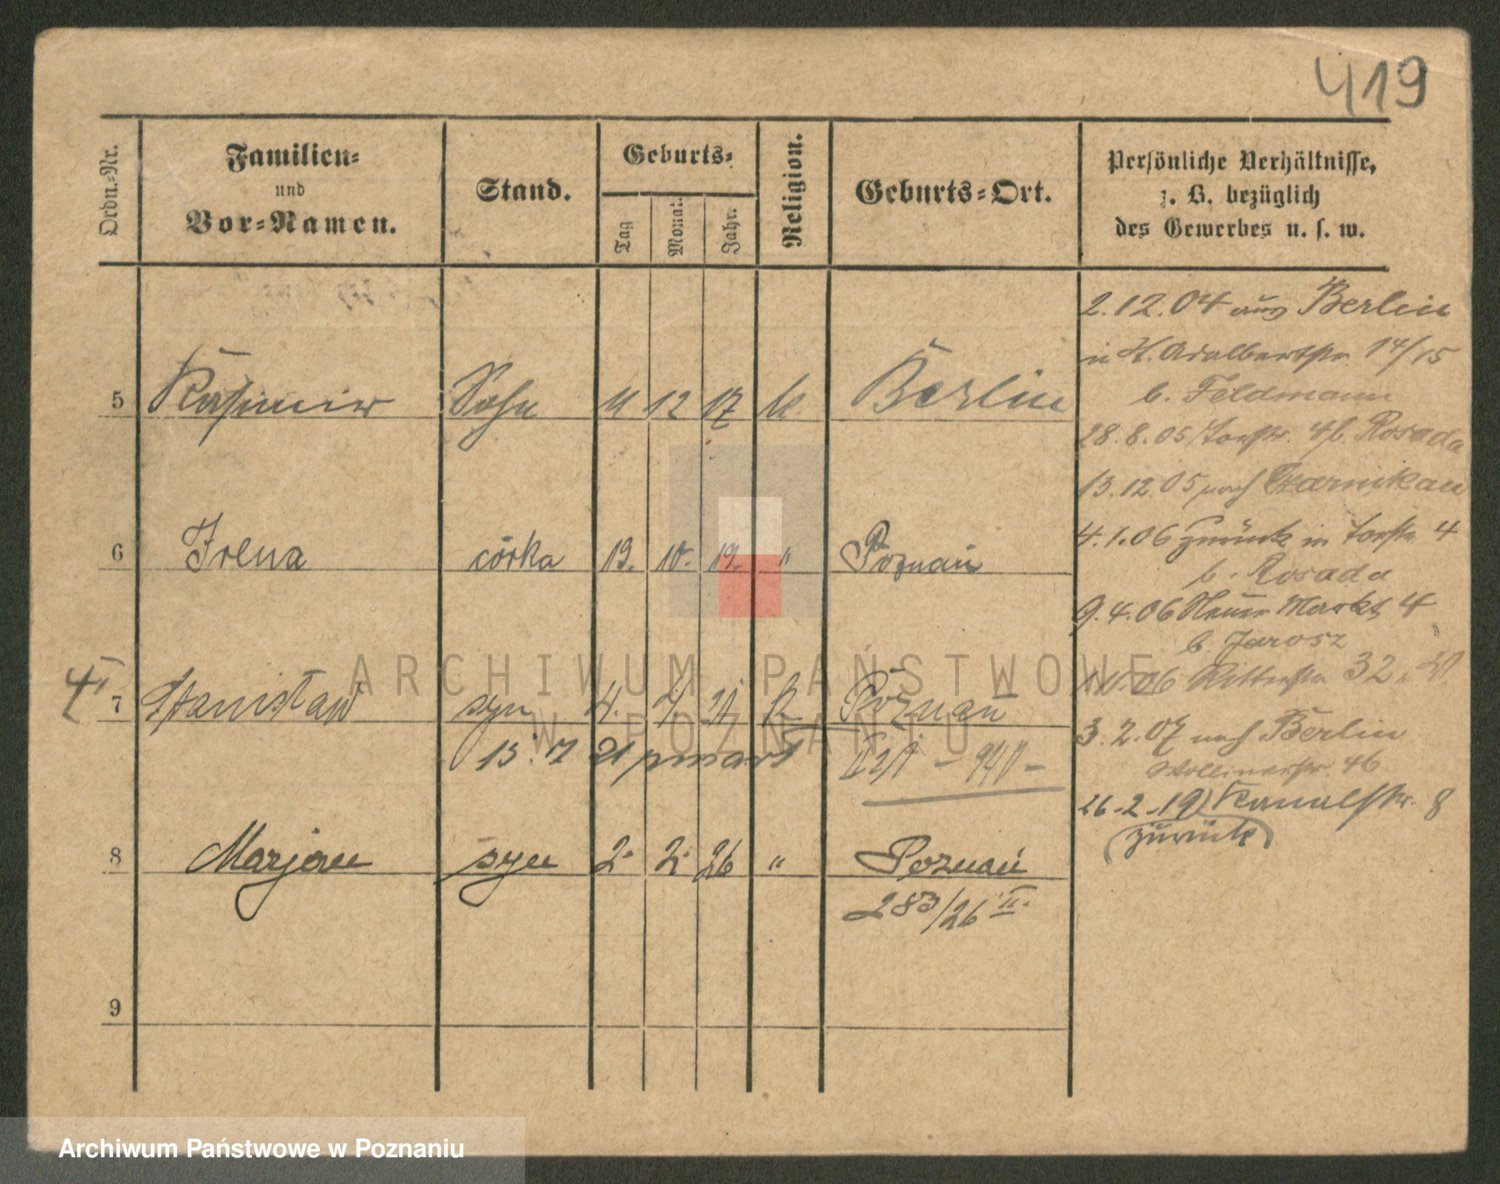 419
Ordn.-Nr.
Familien-
und
Vor-Namen.
Stand.
Geburts-
Tag
Monat.
Jahr.
Religion.
Geburts-Ort.
Persönliche Verhältnisse,
z. B. bezüglich
des Gewerbes u. s. w.
5 Kasimir Sohn 11 12 07 k. Berlin
6 Irena córka 19. 10. 19. " Poznań
7 Stanisław syn 4. 21 k Poznań
21
8 Marjan syn 2. 2. 26 " Poznań
283/26 II.
9
2.12.04 aus Berlin
in H. Adalbertstr. 14/15
b. Feldmann
28.8.05 Torstr. 4 b. Rosada
13.12.05 nach Czarnikau
4.1.06 zurück in Torstr. 4
b. Rosada
9.4.06 Neuer Markt 4
b. Jarosz
06 Ritterstr. 32
3.2.07 nach Berlin
Wollinerstr. 46
26.2.19 Kanalstr. 8
(zurück)
ARCHIWUM PAŃSTWOWE
W POZNANIU
Archiwum Państwowe w Poznaniu